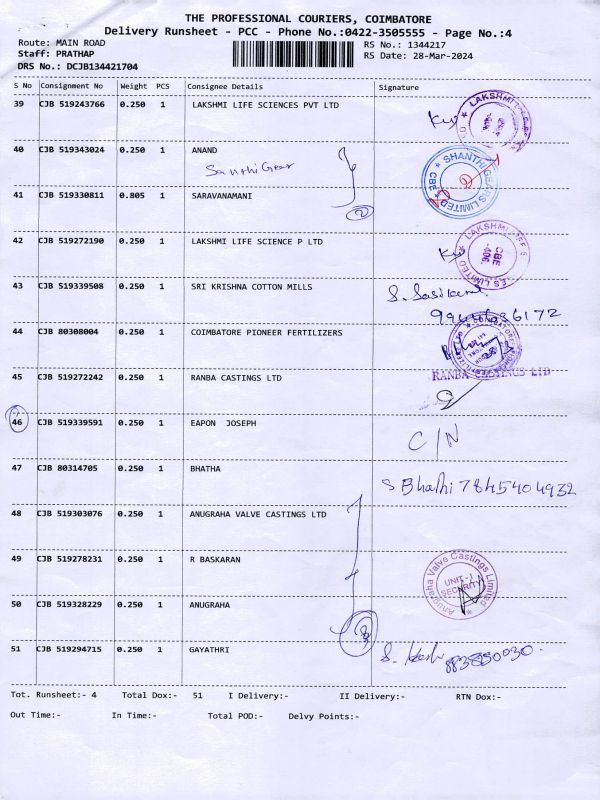 THE PROFESSIONAL COURIERS, COIMBATORE
Delivery Runsheet - PCC - Phone No.:0422-3505555 - Page No.:4
Route: MAIN ROAD
RS No.: 1344217
Staff: PRATHAP
RS Date: 28-Mar-2024
DRS No.: DCJB134421704
S No Consignment No Weight PCS Consignee Details Signature
39 CJB 519243766 0.250 1 LAKSHMI LIFE SCIENCES PVT LTD
40 CJB 519343024 0.250 1 ANAND
Santhi Gear
SHANTHI GEARS LIMITED CBE
41 CJB 519330811 0.805 1 SARAVANAMANI
2
42 CJB 519272190 0.250 1 LAKSHMI LIFE SCIENCE P LTD
CBE
43 CJB 519339508 0.250 1 SRI KRISHNA COTTON MILLS
44 CJB 80308004 0.250 1 COIMBATORE PIONEER FERTILIZERS
RANBA CASTINGS LTD
45 CJB 519272242 0.250 1 RANBA CASTINGS LTD
46 CJB 519339591 0.250 1 EAPON JOSEPH C/N
47 CJB 80314705 0.250 1 BHATHA S Bhathi 7845404932
48 CJB 519303076 0.250 1 ANUGRAHA VALVE CASTINGS LTD
49 CJB 519278231 0.250 1 R BASKARAN
Anugraha Valve Castings Limited
UNIT-1
SECURITY
50 CJB 519328229 0.250 1 ANUGRAHA
3
51 CJB 519294715 0.250 1 GAYATHRI
Tot. Runsheet:- 4 Total Dox:- 51 I Delivery:- II Delivery:- RTN Dox:-
Out Time:- In Time:- Total POD:- Delvy Points:-